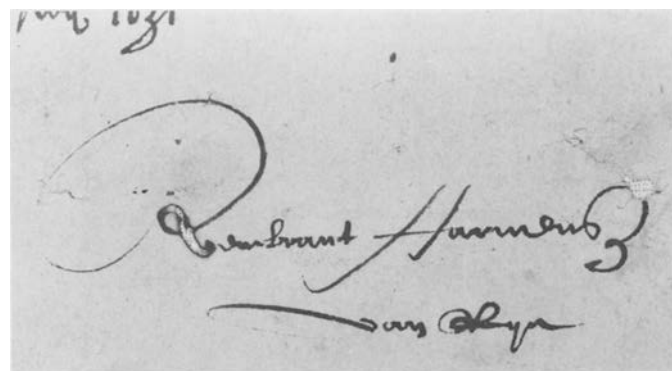 1631
Rembrant Harmensz
van Ryn